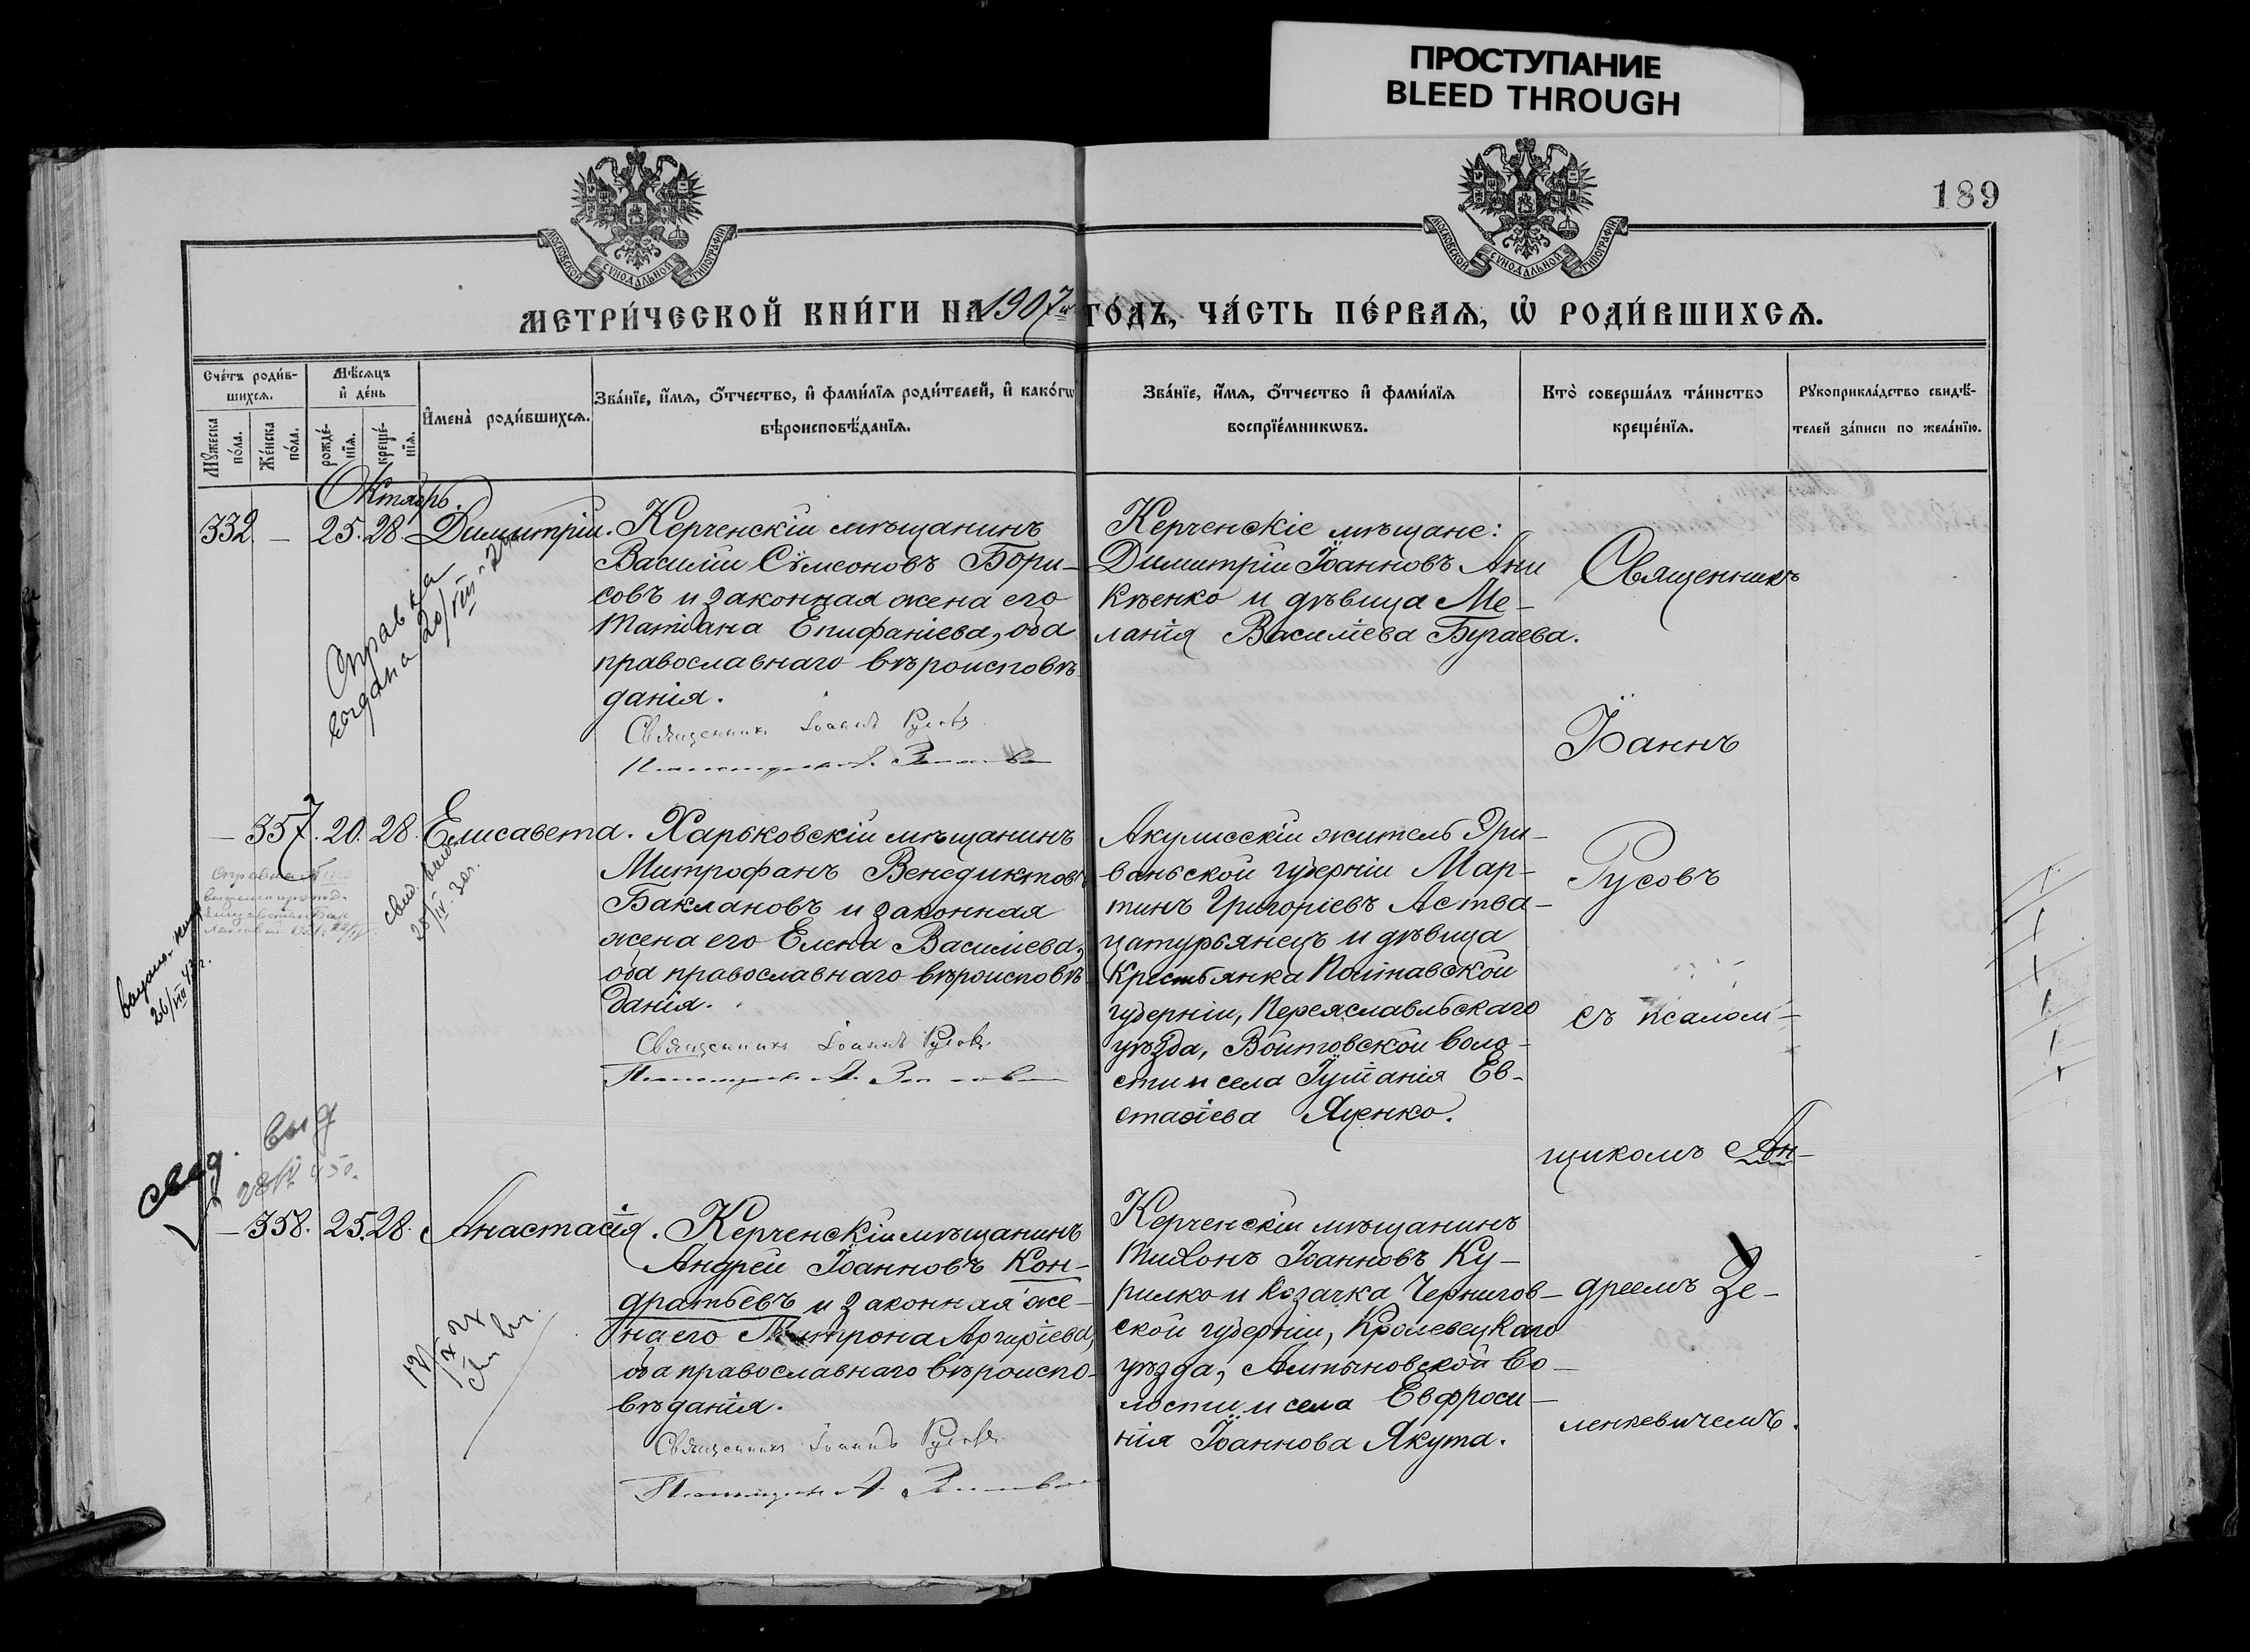 ПРОСТУПАНИЕ
BLEED THROUGH
189
МОСКОВСКОЙ СѴНОДАЛЬНОЙ ТИПОГРАФІИ
МОСКОВСКОЙ СѴНОДАЛЬНОЙ ТИПОГРАФІИ
МЕТРИ́ЧЕСКОЙ КНИ́ГИ НА 1907й ГО́ДЪ, ЧА́СТЬ ПЕ́РВАѦ, Ѡ҆ РОДИ́ВШИХСѦ.
Сче́тъ роди́в-
шихсѧ.
Мꙋ́жеска по́ла.
Же́нска по́ла.
Мѣ́сѧцъ
и҆ де́нь
рожде́-
нїѧ.
креще́-
нїѧ.
И҆мена̀ роди́вшихсѧ.
Зва́нїе, и҆́мѧ, ѻ҆́тчество, и҆ фами́лїѧ роди́телей, и҆ како́гѡ
вѣроисповѣ́данїѧ.
Зва́нїе, и҆́мѧ, ѻ҆́тчество и҆ фами́лїѧ
воспрїе́мникѡвъ.
Кто̀ соверша́лъ та́инство
креще́нїѧ.
Рꙋкоприкла́дство свидѣ́-
телей за́писи по жела́нїю.
Октябрь.
332. — 25. 28. Димитрій. Керченскій мѣщанинъ
Василій Сѵмеоновъ Бори-
совъ и законная жена его
Татіана Епифаніева, оба
православнаго вѣроисповѣ-
данія.
Священникъ Іоаннъ Русовъ
Справка
20/VIII
Керченскіе мѣщане:
Димитрій Іоанновъ Ани
кѣенко и дѣвица Ме-
ланія Василіева Бугаева.
— 357. 20. 28. Елисавета. Харьковскій мѣщанинъ
Митрофанъ Венедиктовъ
Баклановъ и законная
жена его Елена Василіева,
оба православнаго вѣроисповѣ-
данія.
Священникъ Іоаннъ Русовъ
Справка
26/VIII
Акулисскій житель Эри-
ваньской губерніи Мар-
тинъ Григоріевъ Аства-
цатурьянецъ и дѣвица
крестьянка Полтавской
губерніи, Переяславльскаго
уѣзда, Войтовской воло-
сти и села Іуліанія Ев-
стаѳіева Яценко.
свид.
выд
— 358. 25. 28. Анастасія. Керченскій мѣщанинъ
Андрей Іоанновъ Кон-
дратьевъ и законная же-
на его Матрона Аргиріева,
оба православнаго вѣроиспо-
вѣданія.
Священникъ Іоаннъ Русовъ
Керченскій мѣщанинъ
Тихонъ Іоанновъ Ку-
рилко и козачка Чернигов-
ской губерніи, Кролевецкаго
уѣзда, Алтыновской во-
лости и села Евфроси-
нія Іоаннова Якута.
Священникъ
Іоаннъ
Русовъ
съ псалом-
щикомъ Ан-
дреемъ Зе-
ленкевичемъ.